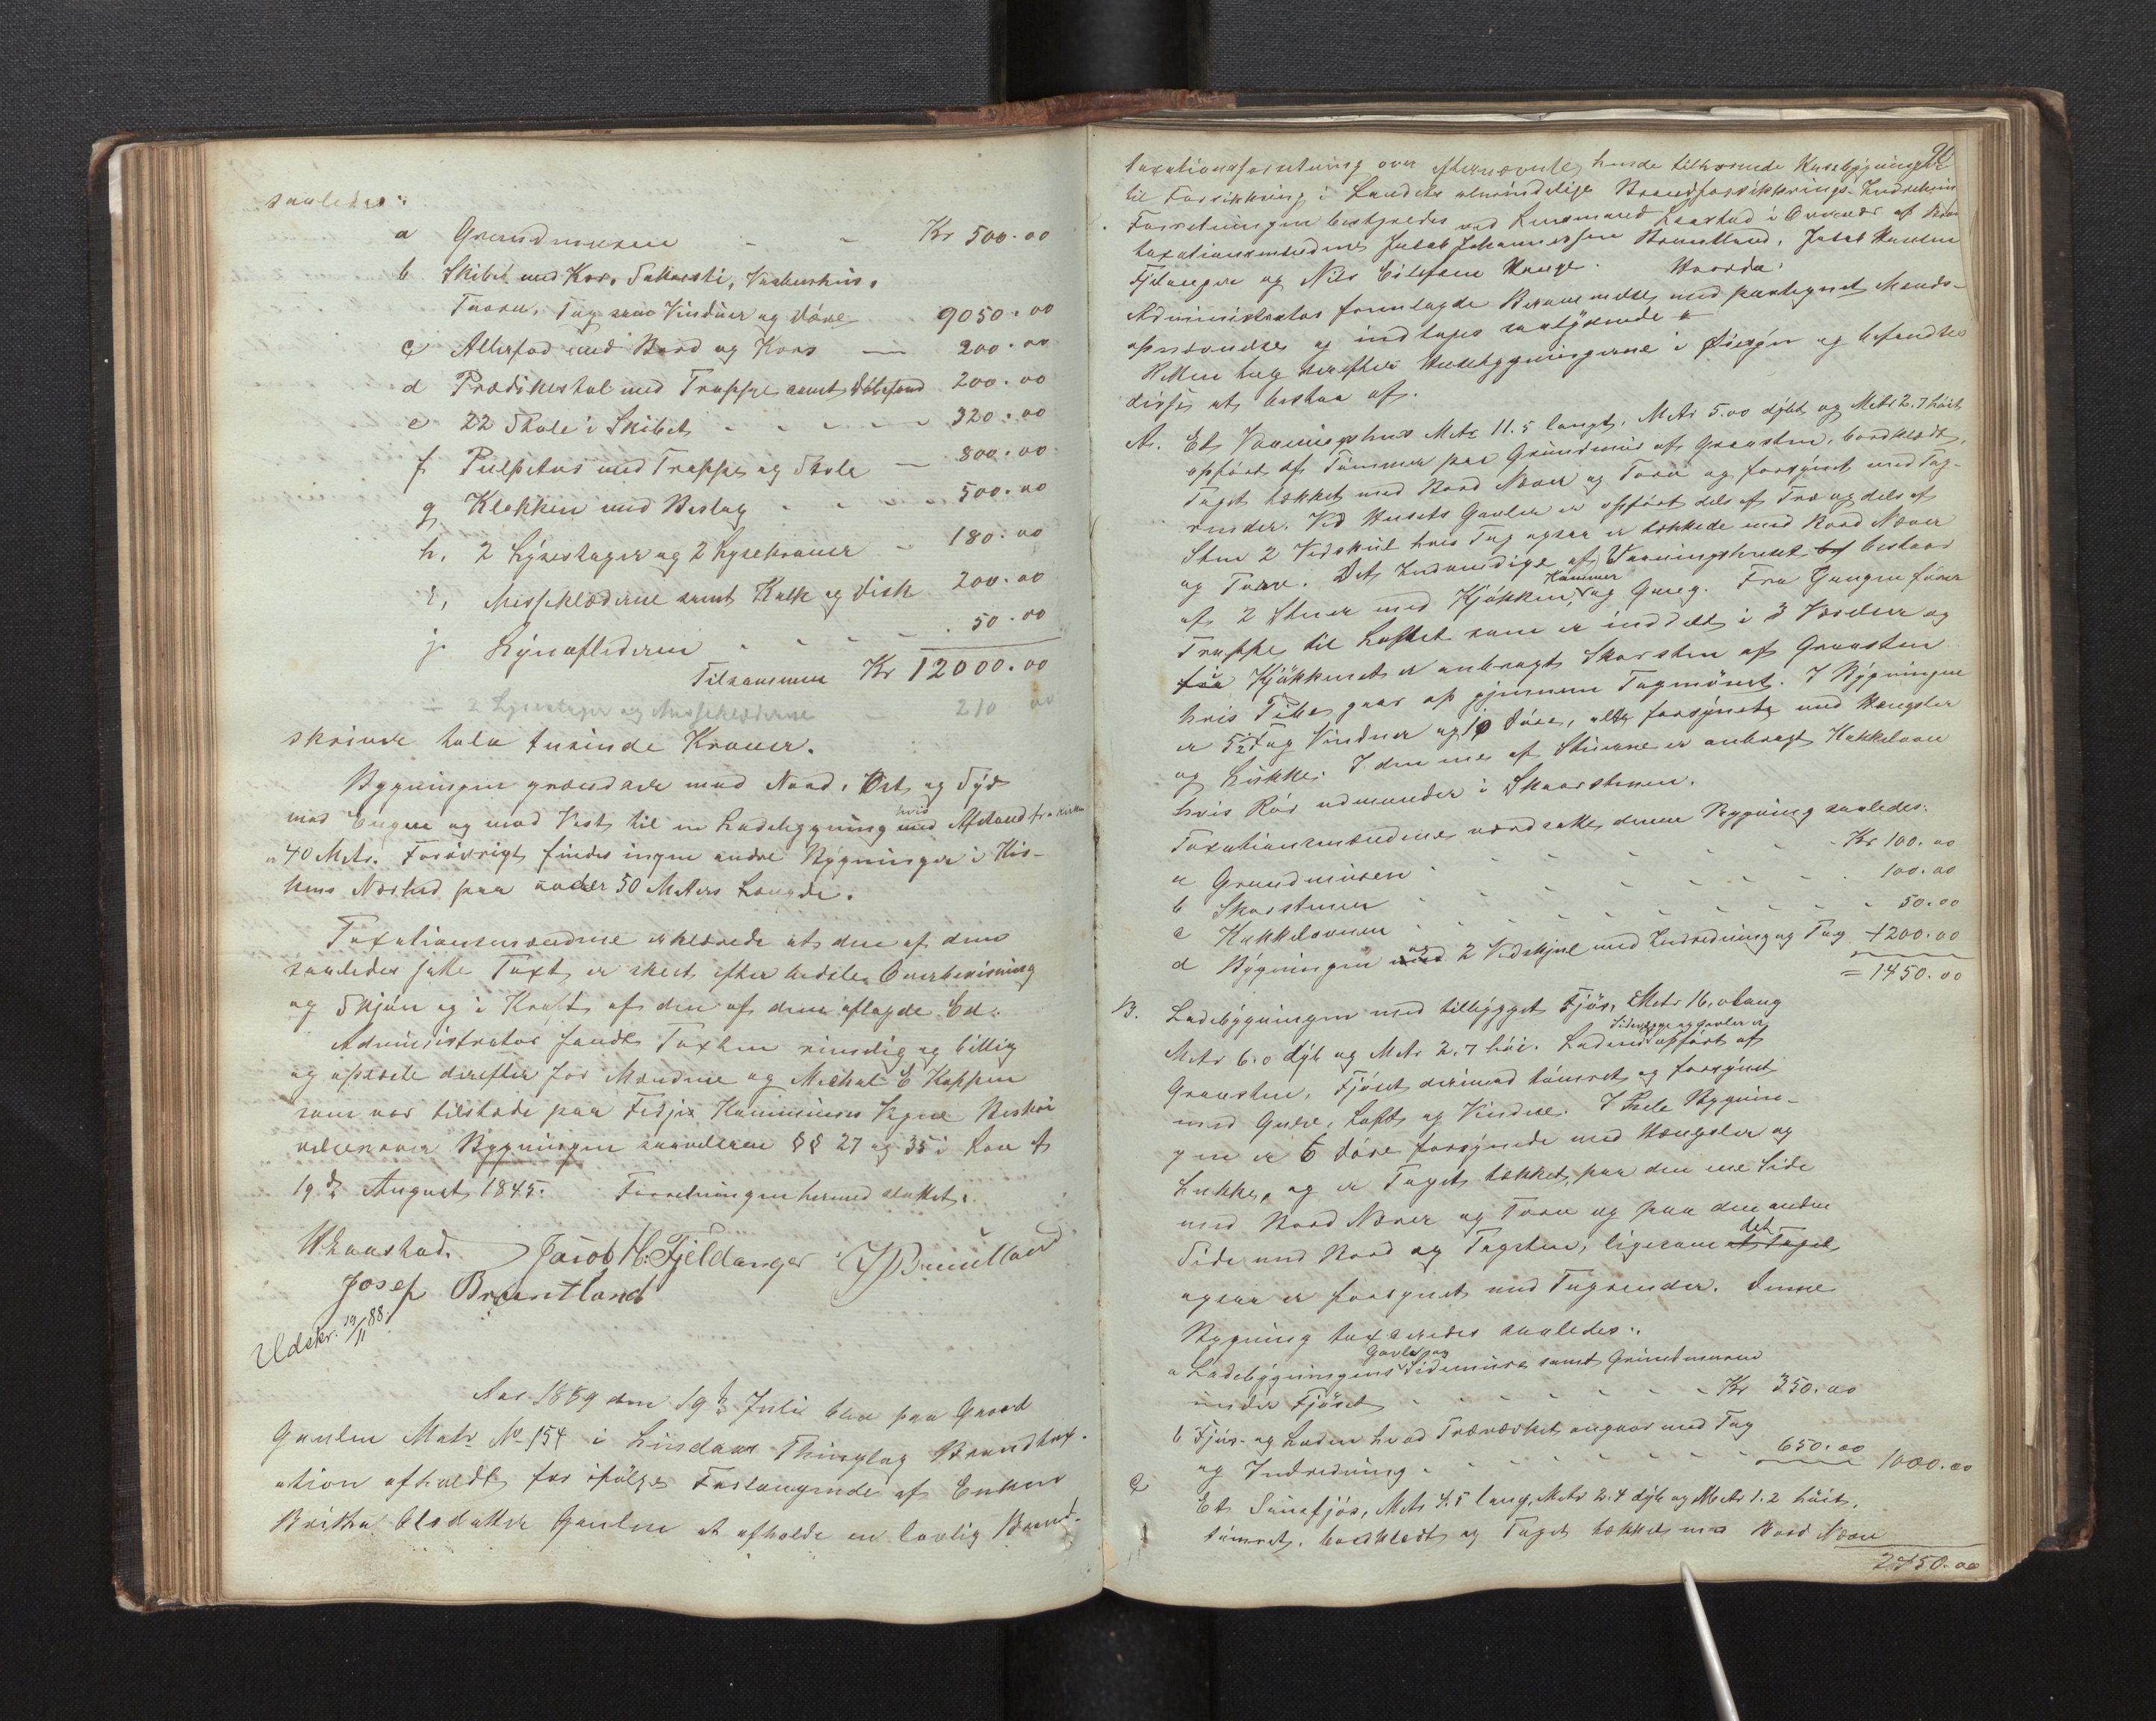 saaledes:
a Grundmuren - - Kr 500.00
b Skibet med Kor, Sakresti, Vaabenhus,
Taarn, Tag samt Vinduer og Døre 9050.00
c Alterfod med Bord og Kors — 200.00
d Prædikestol med Trappe samt Døbefond 200.00
e 22 Stole i Skibet - - - - 320.00
f Pulpetur med Trappe og Stole — 800.00
g Klokken med Beslag - - - 500.00
h, 2 Lysestager og 2 Lysekroner - 180.00
i, Messeklæderne samt Kalk og Disk 200.00
j. Lynaflederen - - - - 50.00
Tilsammen Kr 12000.00
÷ 2 Lysestager og Messeklæderne - 210 00
skriver tolv tusinde Kroner.
Bygningen grændser mod Nord, Øst og Syd
mod Engen og mod Vest til en Ladebygning hvis med Afstand fra Kirken
er 40 Metr. Forøvrigt findes ingen andre Bygninger i Kir-
kens Nærhed paa under 50 Meters Længde.
Taxationsmændene erklærede at den af dem
saaledes satte Taxt er skeet efter bedste Overbevisning
og Skjøn og i Kraft af den af dem aflagde Ed.
Administrator fandt Taxten rimelig og billig
og oplæste derefter for Mændene og Michal E Koppen
som var tilstede paa Fedje Kommunes Vegne Beskri-
velsen over Bygningen samt §§ 27 og 35 i Lov af
19de August 1845. Forretningen hermed sluttet.
Jacob H: Fjeldanger
Josef Bruntland
Udskr. 19/11 88.
Aar 1889 den 19de Juli blev paa Gaard
Gaulen Matr No 154 i Lindaas Thinglag Brandtax-
ation afholdt for ifølge Forlangende af Enken
Britha Olsdatter Gaulen at afholde en lovlig Brand-
taxationsforretning over efternævnte, hende tilhørende Husebygninger
til Forsikring i Landets almindelige Brandforsikkrings-Indretning
Forretningen bestyredes ved Lensmand Laastad i Overvær af Brand
taxationsmændene Jakob Johannessen Bruntland, Jakob Hansen
Fjeldanger og Nils Eilefsen Hauge.
Administrator fremlagde Berammelse med paategnet Mands-
opnævnelse og indtages saalydende
Retten tog derefter Husebygningerne i Øiesyn og befandtes
disse at bestaa af.
A. Et Vaaningshus Metr 11.5 langt, Metr 5.00 dybt og Metr 2.7 høit
opført af Tømmer paa Grundmur af Graasten, bordklædt,
Taget tækket med Bord Never og Torv og forsynet med Tag-
render. Ved Husets Gavler er opført dels af Træ og dels af
Sten 2 Vedskiul hvis Tag ogsaa er tækkede med Bord Never
og Torv. Det Indvendige af Vaaningshuset bestaar
af 2 Stuer med Kjøkken, Kammer og Gang. Fra Gangen fører
Trappe til Loftet som er inddelt i 3 Værelser og
fra Kjøkkenet er anbragt Skorsten af Graasten
hvis Pibe gaar op gjennem Tagmønet. I Bygningen
er 5½ Fag Vinduer og 10 Døre, alle forsynet med Hængsler
og Lukke. I den ene af Stuerne er anbragt Kakkelovn
hvis Rør udmunder i Skorstenen.
Taxationsmændene værdsatte denne Bygning saaledes:
a Grundmuren - - - - - Kr 100.00
b Skorstenen - - - - - 100.00
c Kakkelovnen - - - - - 50.00
d Bygningen med og 2 Vedskjul med Indredning og Tag 1200.00
= 1450.00
B. Ladebygningen med tilbygget Fjøs, Metr 16,0 lang
Metr 6.0 dyb og Metr 2.7 høi. Ladens Sidevægge og Gavler er opført af
Graasten, Fjøset derimod tømret og forsynet
med Gulv, Loft og Vindue. I hele Bygnin-
gen er 6 Døre forsynede med Hængsler og
Lukke, og er Taget tækket paa den ene Side
med Bord Never og Torv og paa den anden
Side med Bord og Tagsten, ligesom det Taget
ogsaa er forsynet med Tagrender. Denne
Bygning taxeredes saaledes:
a Ladebygningens Gavler og Sidemure samt Grundmuren
under Fjøset - - - - - Kr 350.00
b Fjøs- og Laden hvad Træværket angaar med Tag
og Indredning - - - - - 650.00 1000.00
C Et Sauefjøs, Metr 4.5 lang, Metr 2.4 dyb og Metr 1.2 høit,
tømret, bordklædt og Taget tækket med Bord Never
2450.00